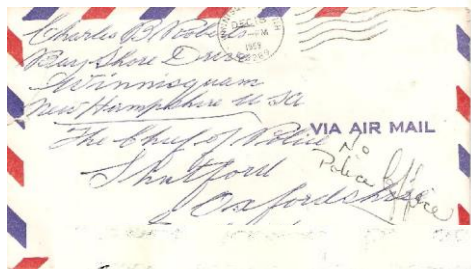 Charles B. Roberts
Bay Shore Drive
Winnisquam
New Hampshire USA
DEC 18
PM
1969
The Chief of Police
VIA AIR MAIL
Shutford
Oxfordshire
No
Police Office